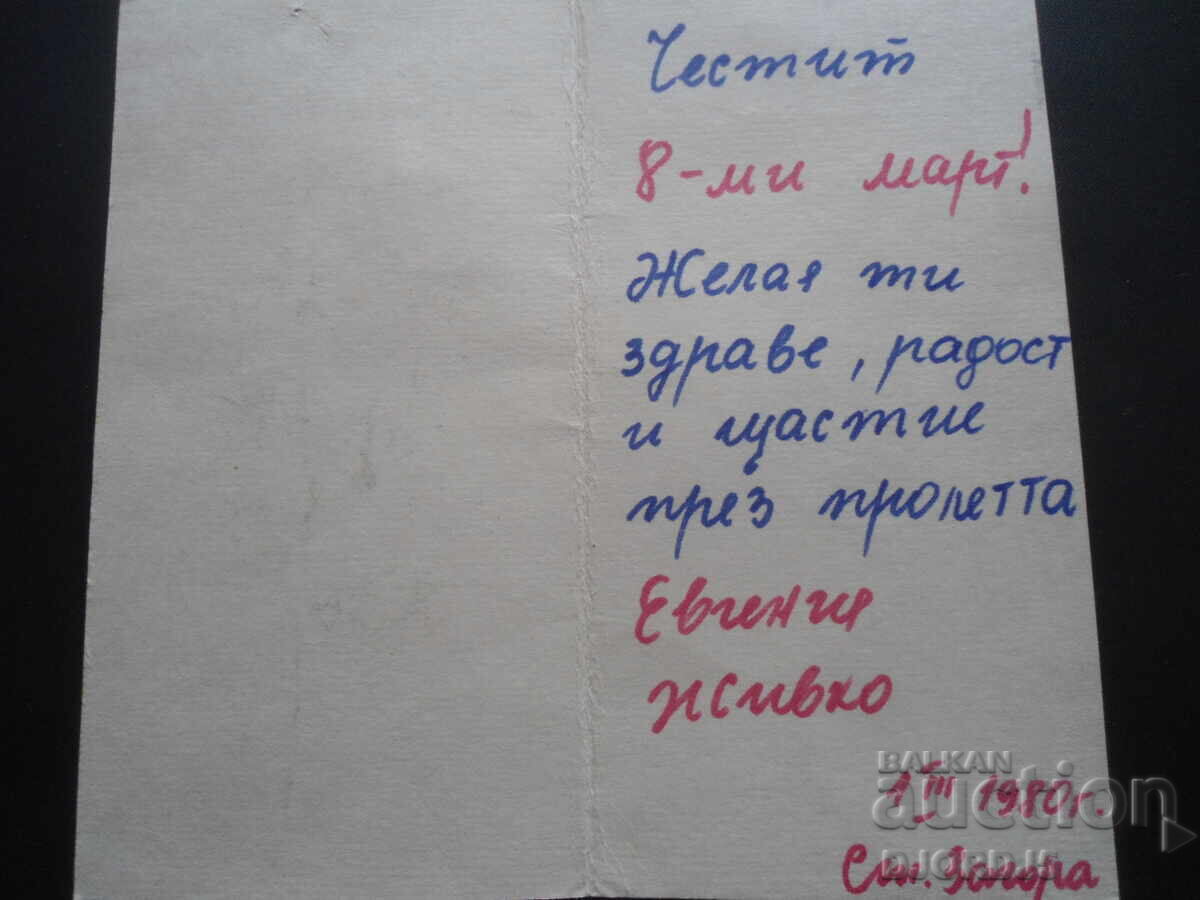 Честит
8-ми март!
Желая ти
здраве, радост
и щастие
през пролетта
Евгения
Живко
1 III 1980г.
Ст. Загора
BALKAN
auction
DJORDJE